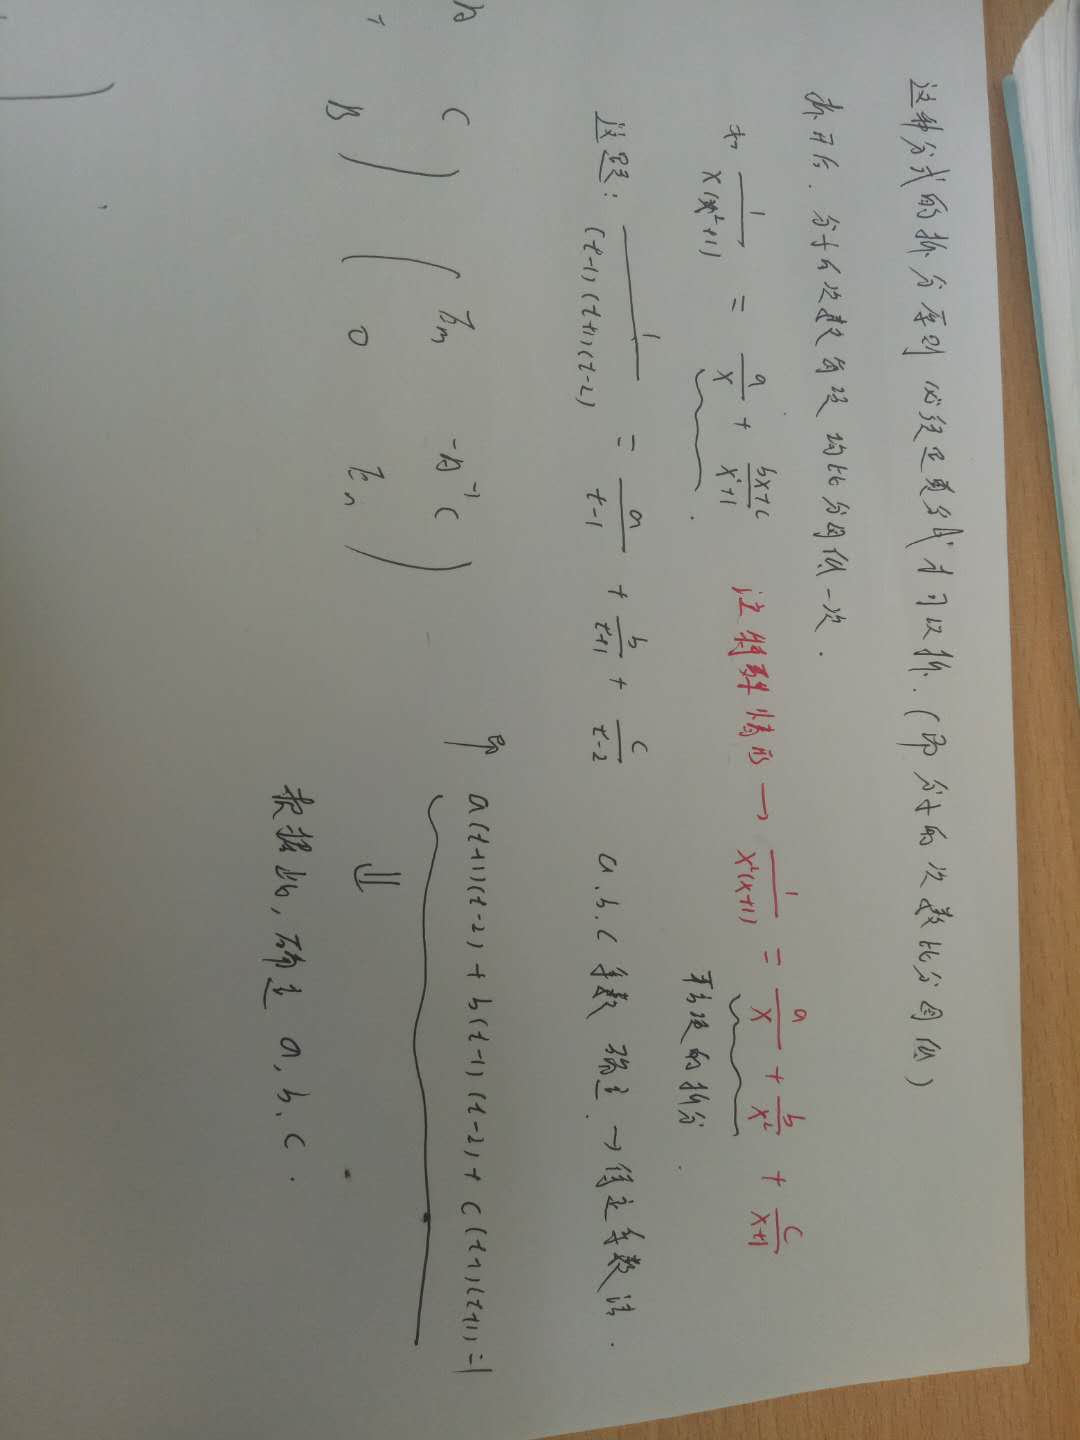 这种分式的拆分原则 必须是真分式才可以拆.(即分子的次数比分母低)
拆开后. 分子的次数每项均比分母低一次.
如 1/x(x²+1) = a/x + (bx+c)/(x²+1) 注特殊情形→ 1/x²(x+1) = a/x + b/x² + c/(x+1)
平方项的拆分.
这题: 1/(t-1)(t+1)(t-2) = a/(t-1) + b/(t+1) + c/(t-2) a.b.c 系数确定.→待定系数法.
即 a(t+1)(t-2)+b(t-1)(t-2)+c(t-1)(t+1)=1
⇓
根据此, 确定 a, b, c.
A C
B ) ( Em -A⁻¹C
0 En )